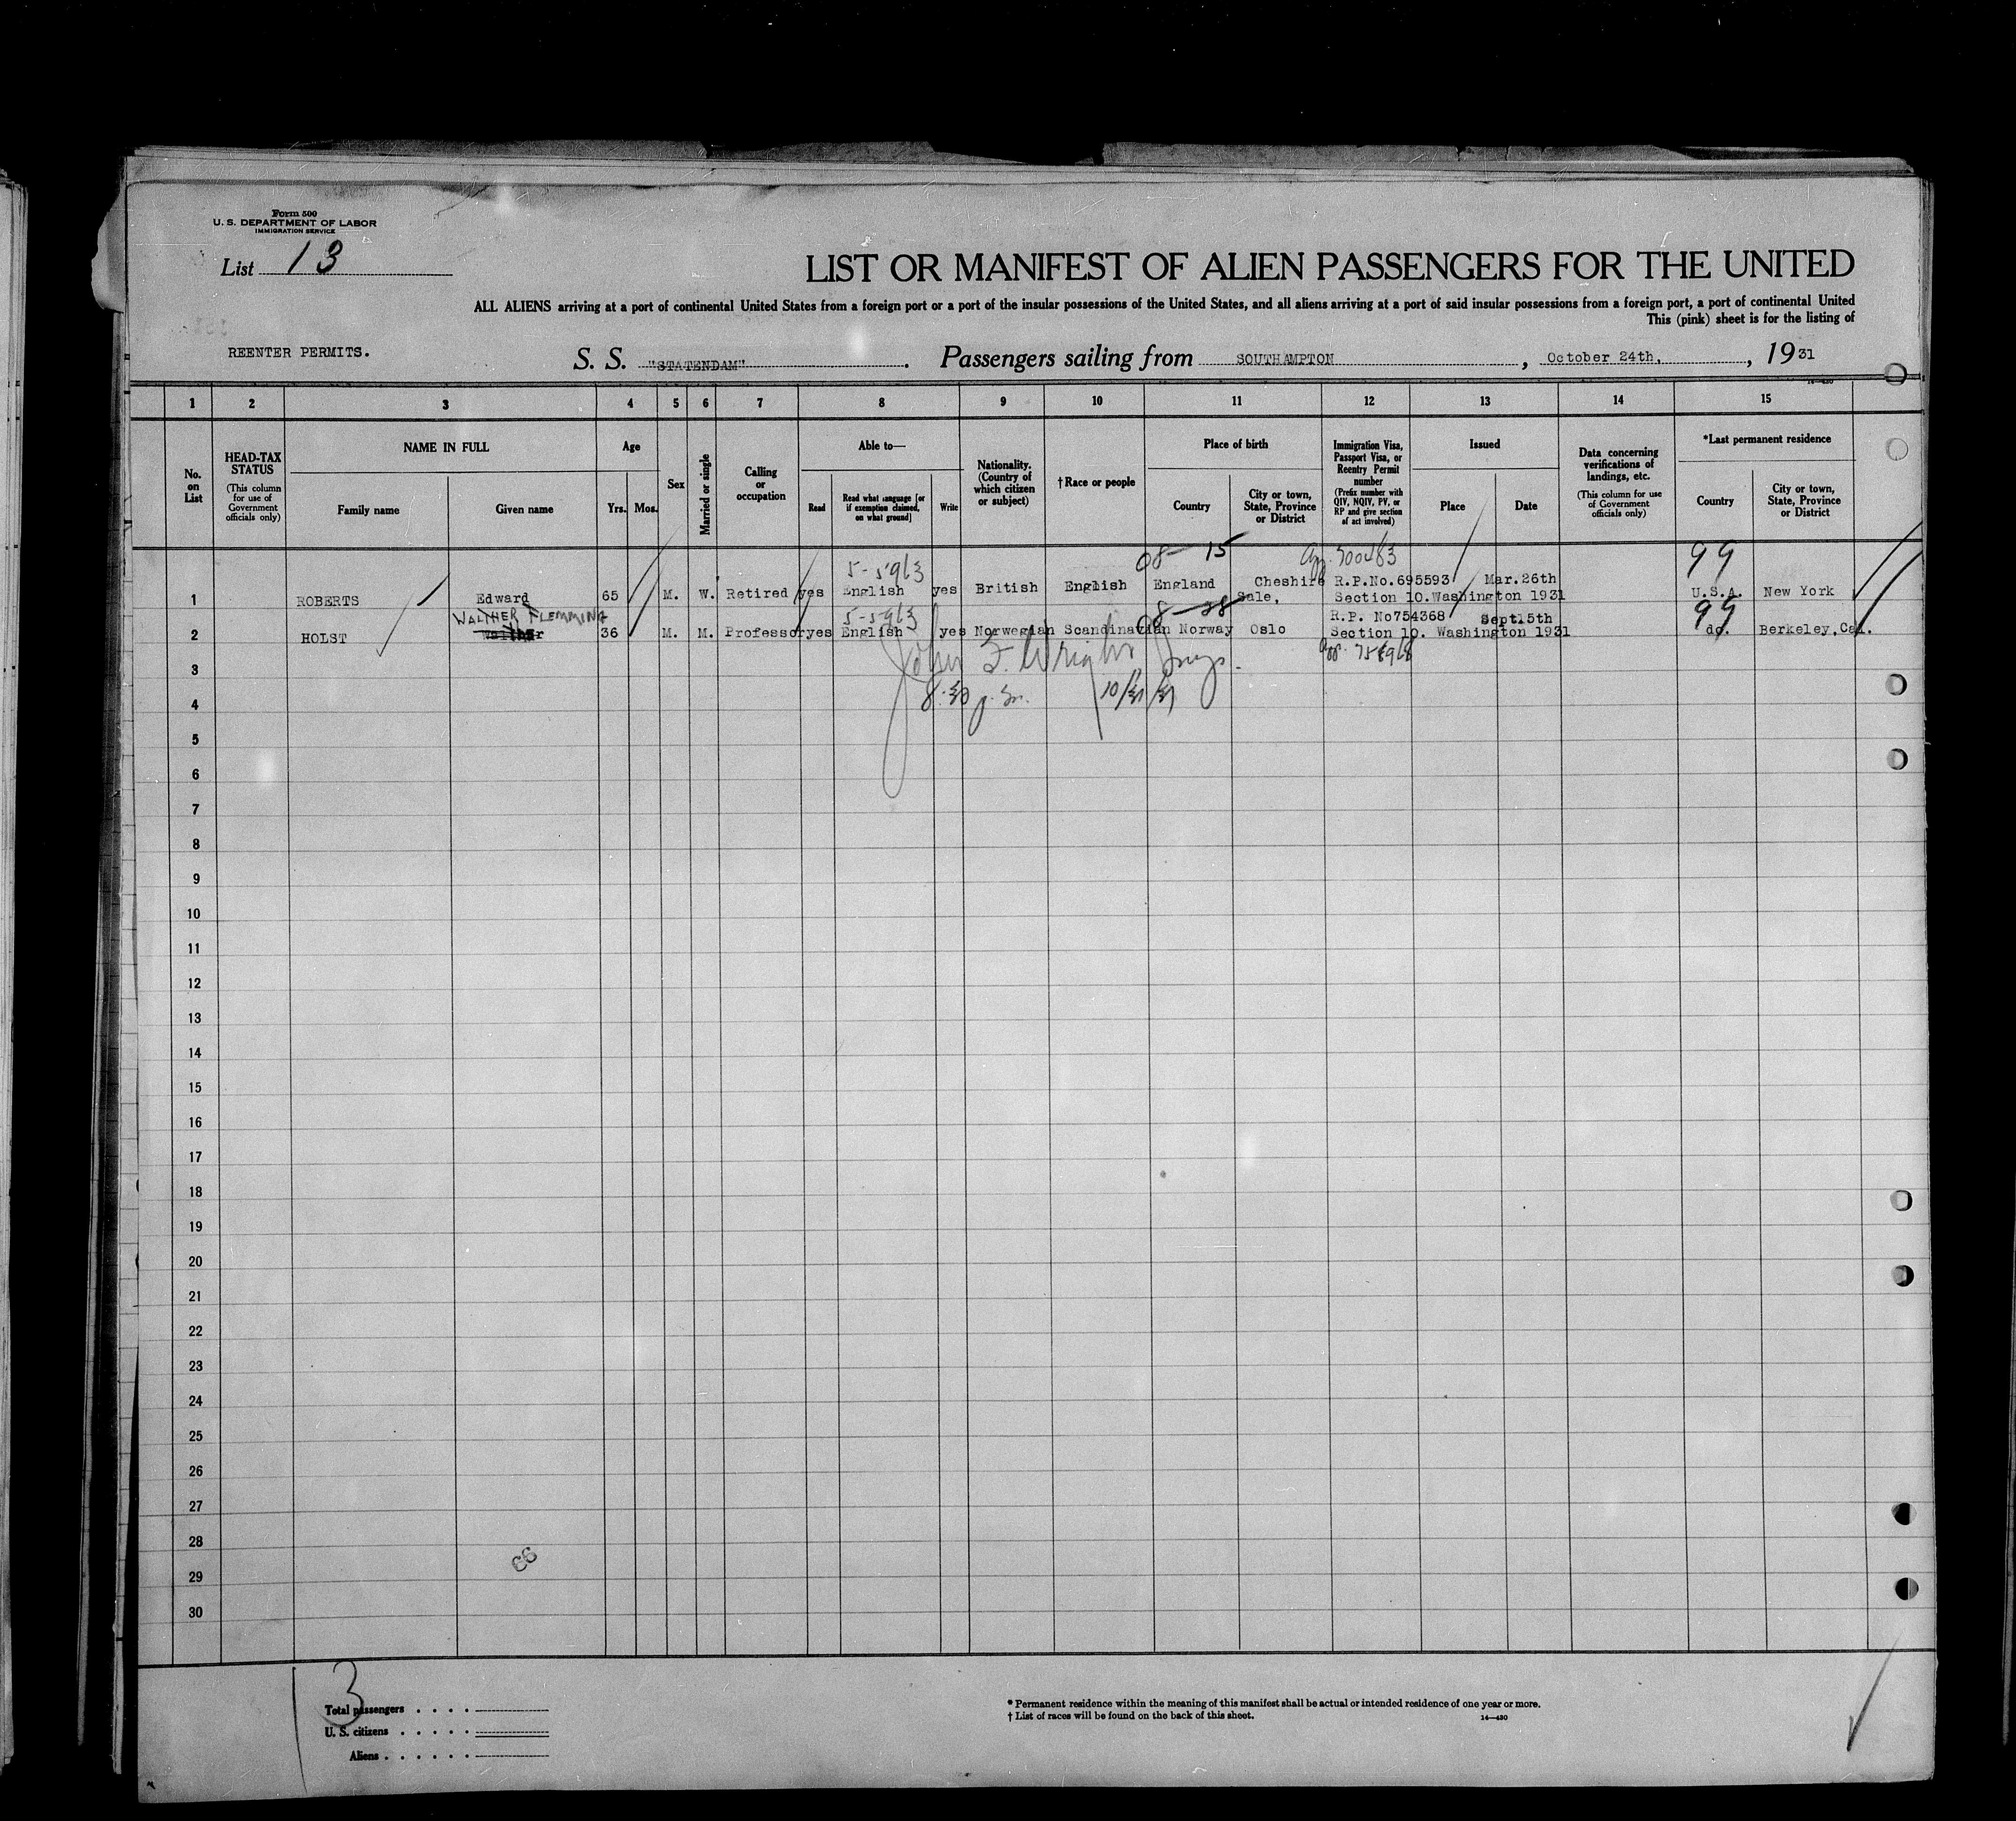 Form 500
U. S. DEPARTMENT OF LABOR
IMMIGRATION SERVICE
List 13
LIST OR MANIFEST OF ALIEN PASSENGERS FOR THE UNITED
ALL ALIENS arriving at a port of continental United States from a foreign port or a port of the insular possessions of the United States, and all aliens arriving at a port of said insular possessions from a foreign port, a port of continental United
This (pink) sheet is for the listing of
REENTER PERMITS.
S. S. "STATENDAM". Passengers sailing from SOUTHAMPTON, October 24th., 1931
14—430
1 2 3 4 5 6 7 8 9 10 11 12 13 14 15
No. on List
HEAD-TAX STATUS
(This column for use of Government officials only)
NAME IN FULL
Family name
Given name
Age
Yrs.
Mos.
Sex
Married or single
Calling or occupation
Able to—
Read
Read what language [or if exemption claimed, on what ground]
Write
Nationality. (Country of which citizen or subject)
† Race or people
Place of birth
Country
City or town, State, Province or District
Immigration Visa, Passport Visa, or Reentry Permit number
(Prefix number with QIV, NQIV, PV, or RP and give section of act involved)
Issued
Place
Date
Data concerning verifications of landings, etc.
(This column for use of Government officials only)
*Last permanent residence
Country
City or town, State, Province or District
5-5963 08 15 99
1 ROBERTS Edward 65 M. W. Retired yes English yes British English England Cheshire Sale, R.P.No.695593 Section 10. Washington Mar.26th 1931 U.S.A. New York
WALTHER FLEMMING 5-5963 08 28 99
2 HOLST Walther 36 M. M. Professor yes English yes Norwegian Scandinavian Norway Oslo R.P. No754368 Section 10. Washington Sept.5th 1931 do. Berkeley, Cal.
John F. Wright Insp.
8:30 p.m. 10/31/31
3
4
5
6
7
8
9
10
11
12
13
14
15
16
17
18
19
20
21
22
23
24
25
26
27
28
29
30
93
3
Total passengers
U. S. citizens
Aliens
* Permanent residence within the meaning of this manifest shall be actual or intended residence of one year or more.
† List of races will be found on the back of this sheet.
14—430